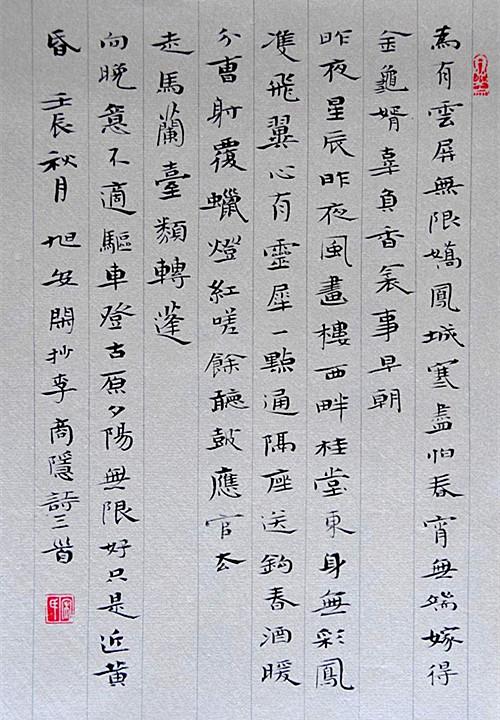 為有雲屏無限嬌鳳城寒盡怕春宵無端嫁得
金龜婿辜負香衾事早朝
昨夜星辰昨夜風畫樓西畔桂堂東身無彩鳳
隻飛翼心有靈犀一點通隔座送鈎春酒暖
分曹射覆蠟燈紅嗟餘聽鼓應官去
走馬蘭臺類轉蓬
向晚意不適驅車登古原夕陽無限好只是近黃
昏 壬辰秋月 旭 閑抄李商隱詩三首